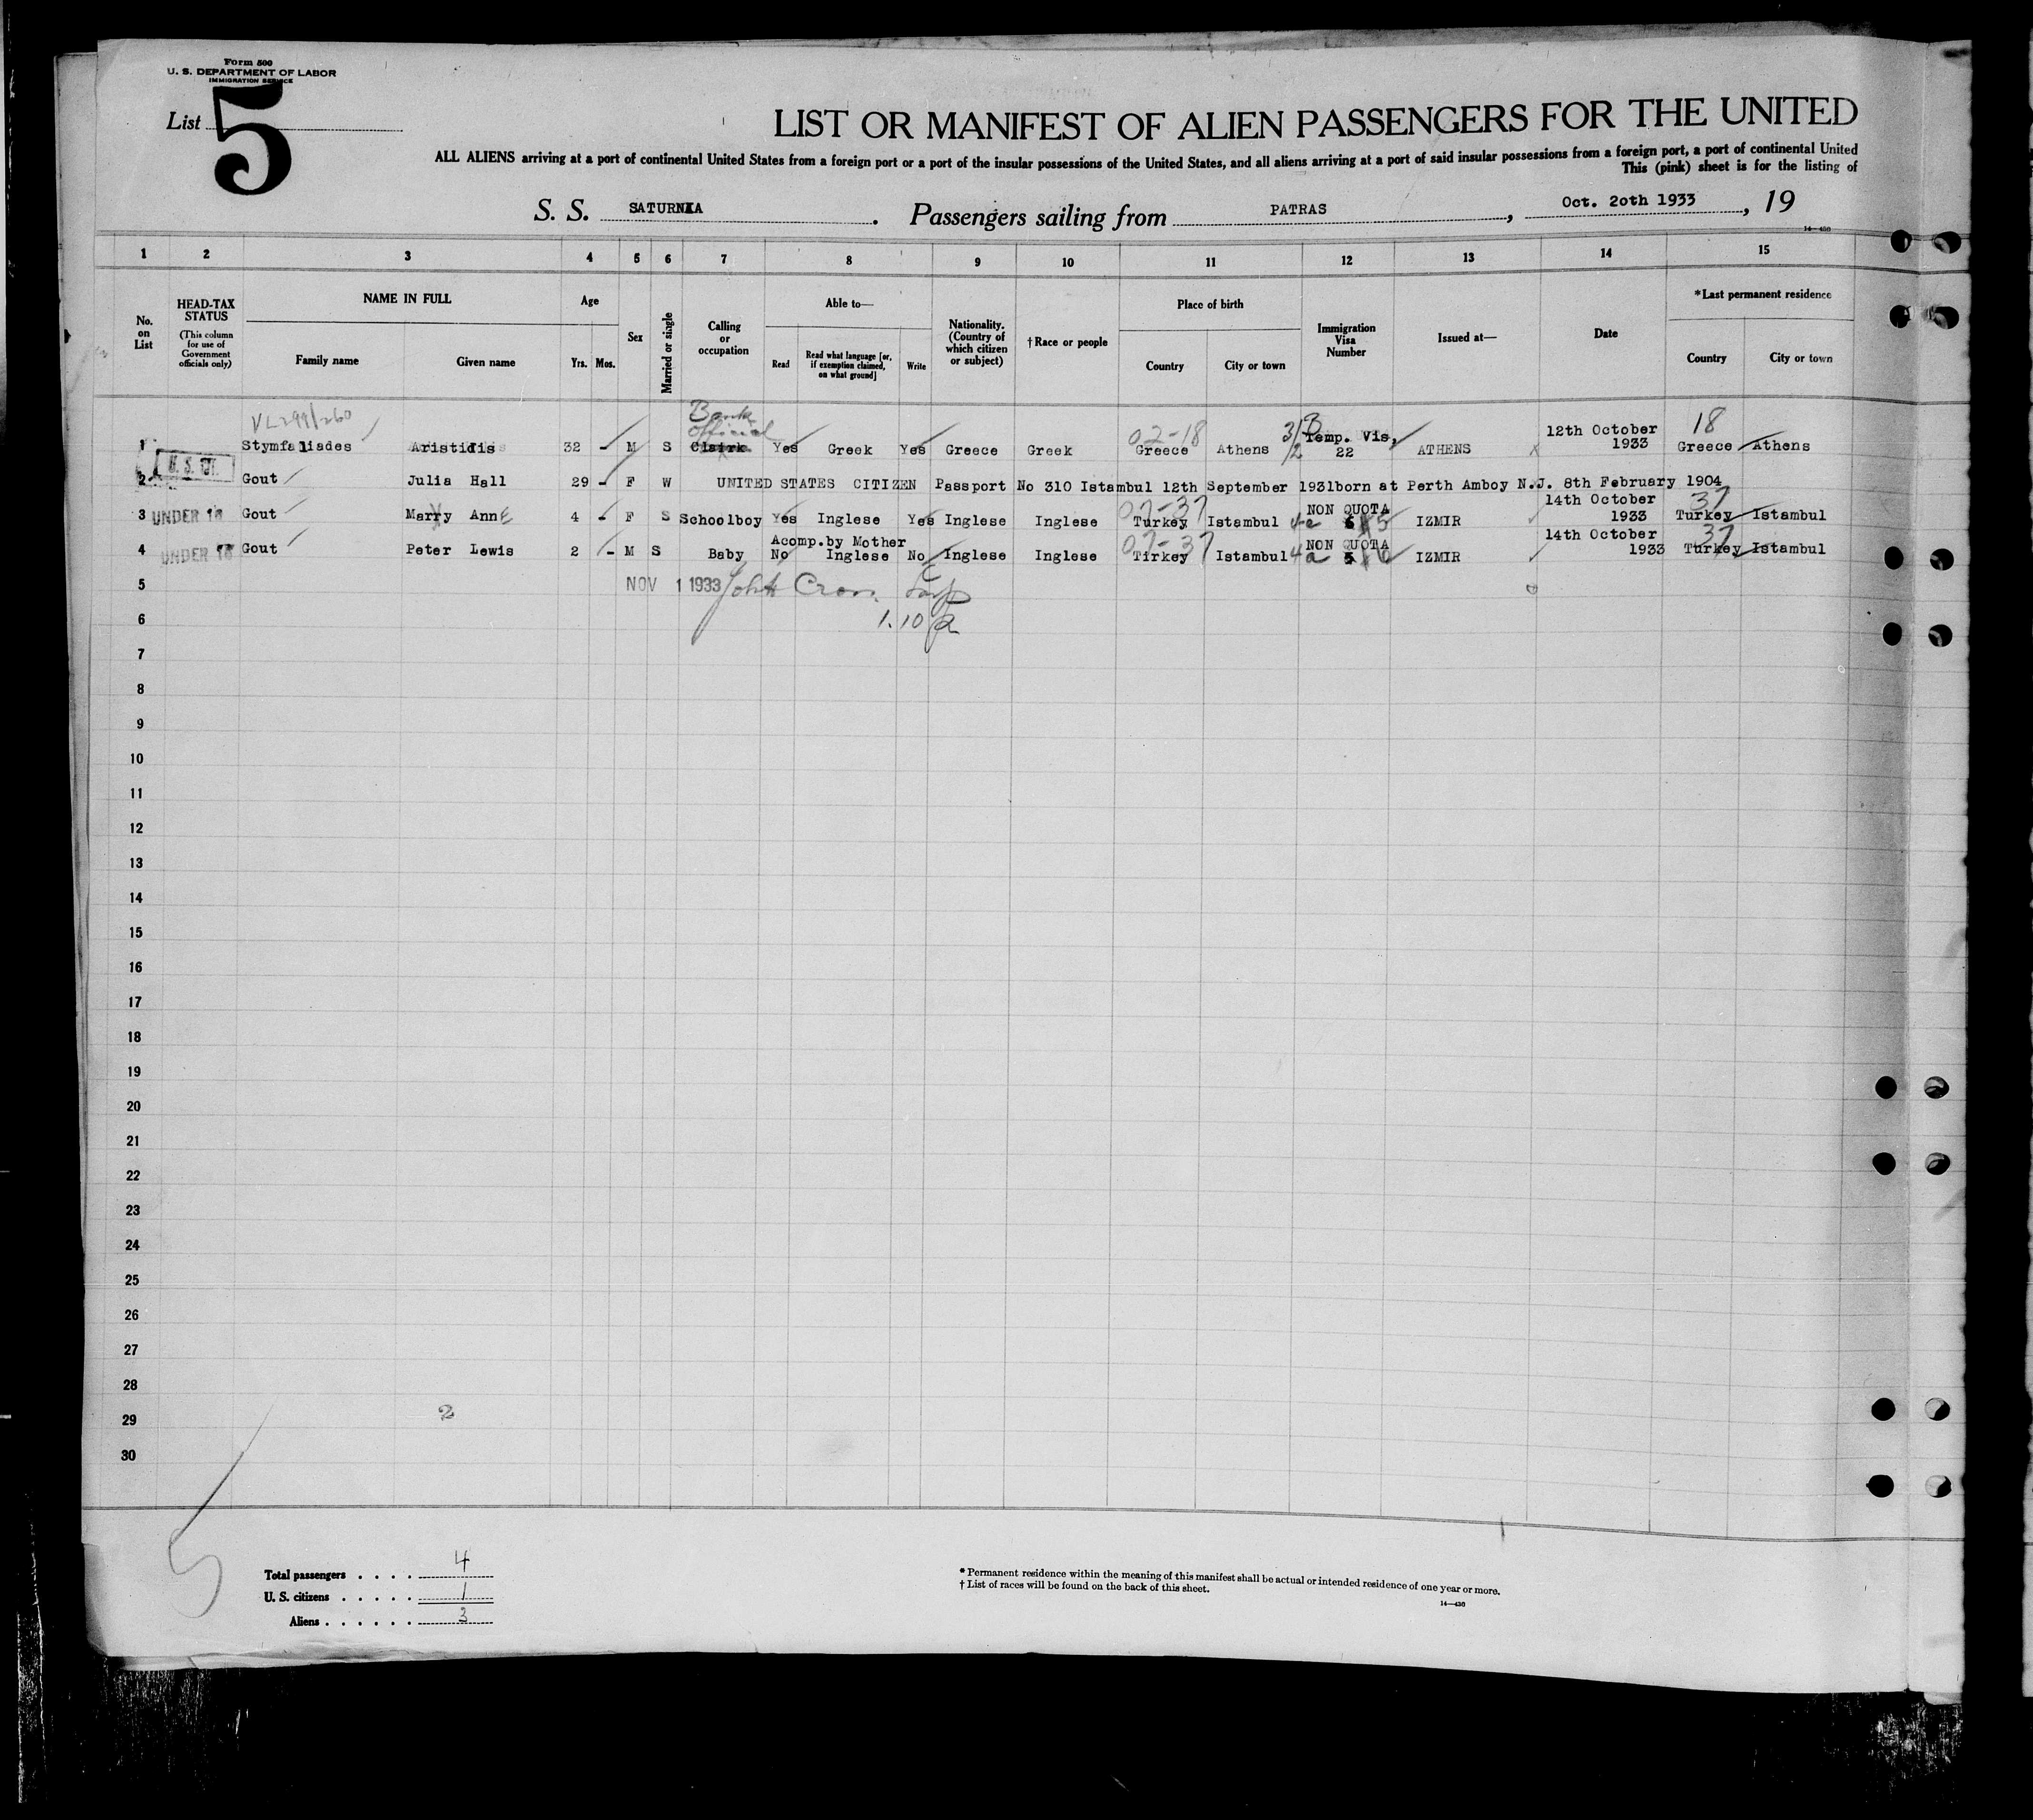 Form 500
U. S. DEPARTMENT OF LABOR
IMMIGRATION SERVICE
List 5
LIST OR MANIFEST OF ALIEN PASSENGERS FOR THE UNITED
ALL ALIENS arriving at a port of continental United States from a foreign port or a port of the insular possessions of the United States, and all aliens arriving at a port of said insular possessions from a foreign port, a port of continental United
This (pink) sheet is for the listing of
S. S. SATURNIA. Passengers sailing from PATRAS, Oct. 2oth 1933, 19
14-430
1 2 3 4 5 6 7 8 9 10 11 12 13 14 15
No. on List
HEAD-TAX STATUS
(This column for use of Government officials only)
NAME IN FULL
Family name Given name
Age
Yrs. Mos.
Sex
Married or single
Calling or occupation
Able to—
Read
Read what language [or, if exemption claimed, on what ground]
Write
Nationality. (Country of which citizen or subject)
†Race or people
Place of birth
Country City or town
Immigration Visa Number
Issued at—
Date
*Last permanent residence
Country City or town
VL299/260 Bank Official 02-18 3/2 B 18
1 Stymfaliades Aristidis 32 - M S Clairk Yes Greek Yes Greece Greek Greece Athens Temp. Vis, 22 ATHENS 12th October 1933 Greece Athens
2 Gout Julia Hall 29 - F W UNITED STATES CITIZEN Passport No 310 Istambul 12th September 1931born at Perth Amboy N.J. 8th February 1904
3 UNDER 16 Gout Marry AnnE 4 - F S Schoolboy Yes Inglese Yes Inglese Inglese 07-37 Turkey Istambul NON QUOTA 5 IZMIR 14th October 1933 37 Turkey Istambul
4 UNDER 16 Gout Peter Lewis 2 - M S Baby Acomp.by Mother No Inglese No Inglese Inglese 07-37 Tirkey Istambul 4a NON QUOTA 6 IZMIR 14th October 1933 37 Turkey Istambul
5 NOV 1 1933
6 1.10
7
8
9
10
11
12
13
14
15
16
17
18
19
20
21
22
23
24
25
26
27
28
29 2
30
5
Total passengers . . . . 4
U. S. citizens . . . . . 1
Aliens . . . . . . 3
* Permanent residence within the meaning of this manifest shall be actual or intended residence of one year or more.
† List of races will be found on the back of this sheet.
14-430